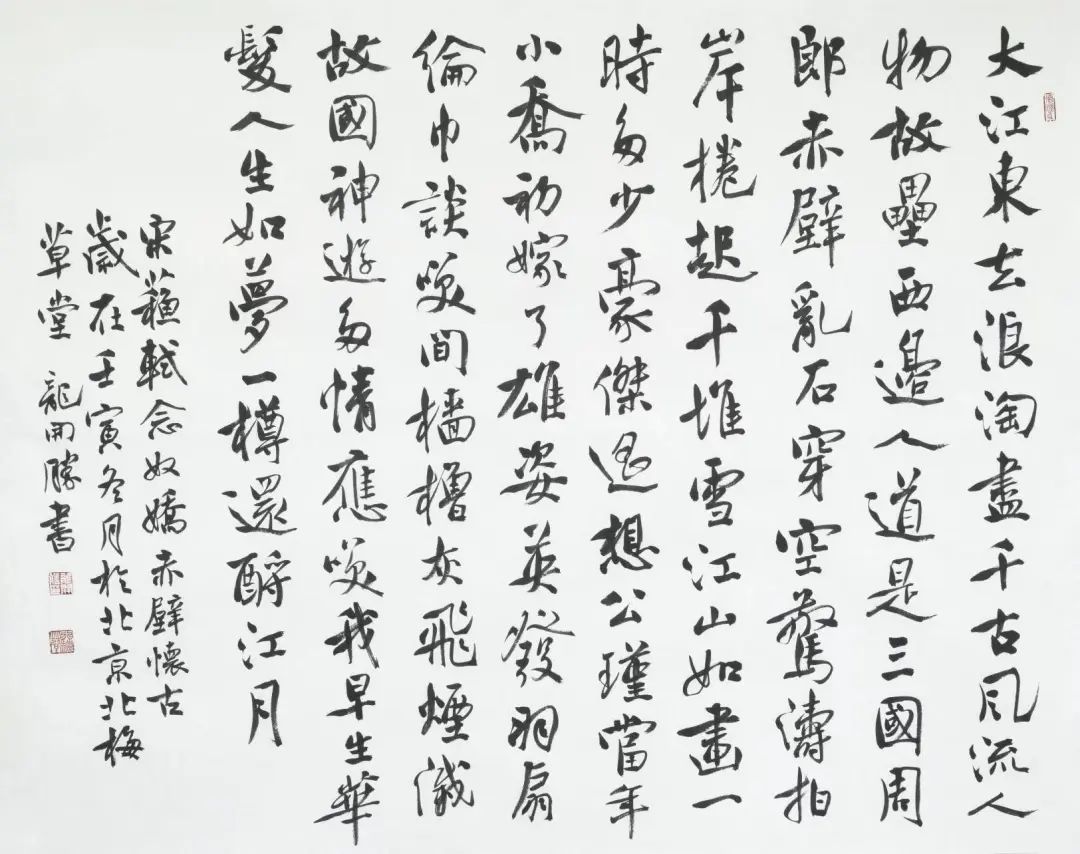 大江東去浪淘盡千古風流人
物故壘西邊人道是三國周
郎赤壁亂石穿空驚濤拍
岸捲起千堆雪江山如畫一
時多少豪傑遥想公瑾當年
小喬初嫁了雄姿英發羽扇
綸巾談笑間檣櫓灰飛煙滅
故國神遊多情應笑我早生華
髮人生如夢一樽還酹江月
宋蘇軾念奴嬌赤壁懷古
歲在壬寅冬月於北京北梅
草堂 龍開勝書